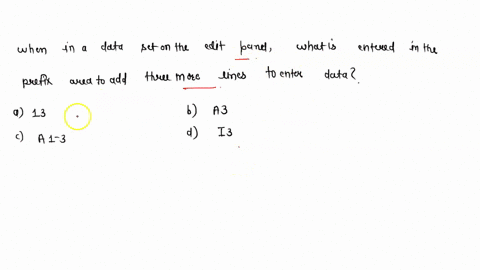 when in a data set on the edit panel, what is entered in the
prefix area to add three more lines to enter data?
a) 13 b) A3
c) A 1-3 d) I3